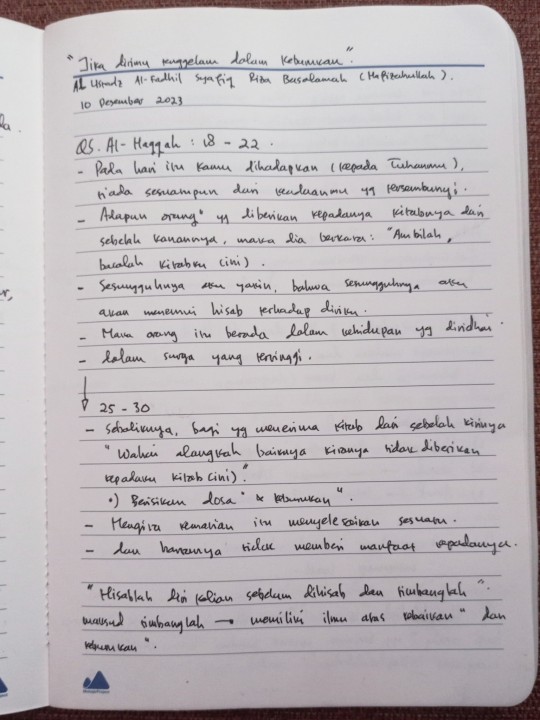 "Jika dirimu tenggelam dalam keburukan".
Al Ustadz Al-Fadhil Syafiq Riza Basalamah (Hafizahullah).
10 Desember 2023
QS. Al-Haqqah : 18 - 22.
- Pada hari itu kamu dihadapkan (kepada Tuhanmu),
tiada sesuatupun dari keadaanmu yg tersembunyi.
- Adapun orang" yg diberikan kepadanya kitabnya dari
sebelah kanannya, maka dia berkata: "Ambilah,
bacalah kitabku (ini).
- Sesungguhnya aku yakin, bahwa sesungguhnya aku
akan menemui hisab terhadap diriku.
- Maka orang itu berada dalam kehidupan yg diridhai
- dalam surga yang tertinggi.
25 - 30
- Sebaliknya, bagi yg menerima kitab dari sebelah kirinya
"Wahai alangkah baiknya kiranya tidak diberikan
kepadaku kitab (ini)."
•) Berisikan dosa" & keburukan".
- Mengira kematian itu menyelesaikan sesuatu.
- dan hartanya tidak memberi manfaat kepadanya.
"Hisablah diri kalian sebelum dihisab dan timbanglah".
maksud timbanglah → memiliki ilmu atas kebaikan" dan
keburukan".